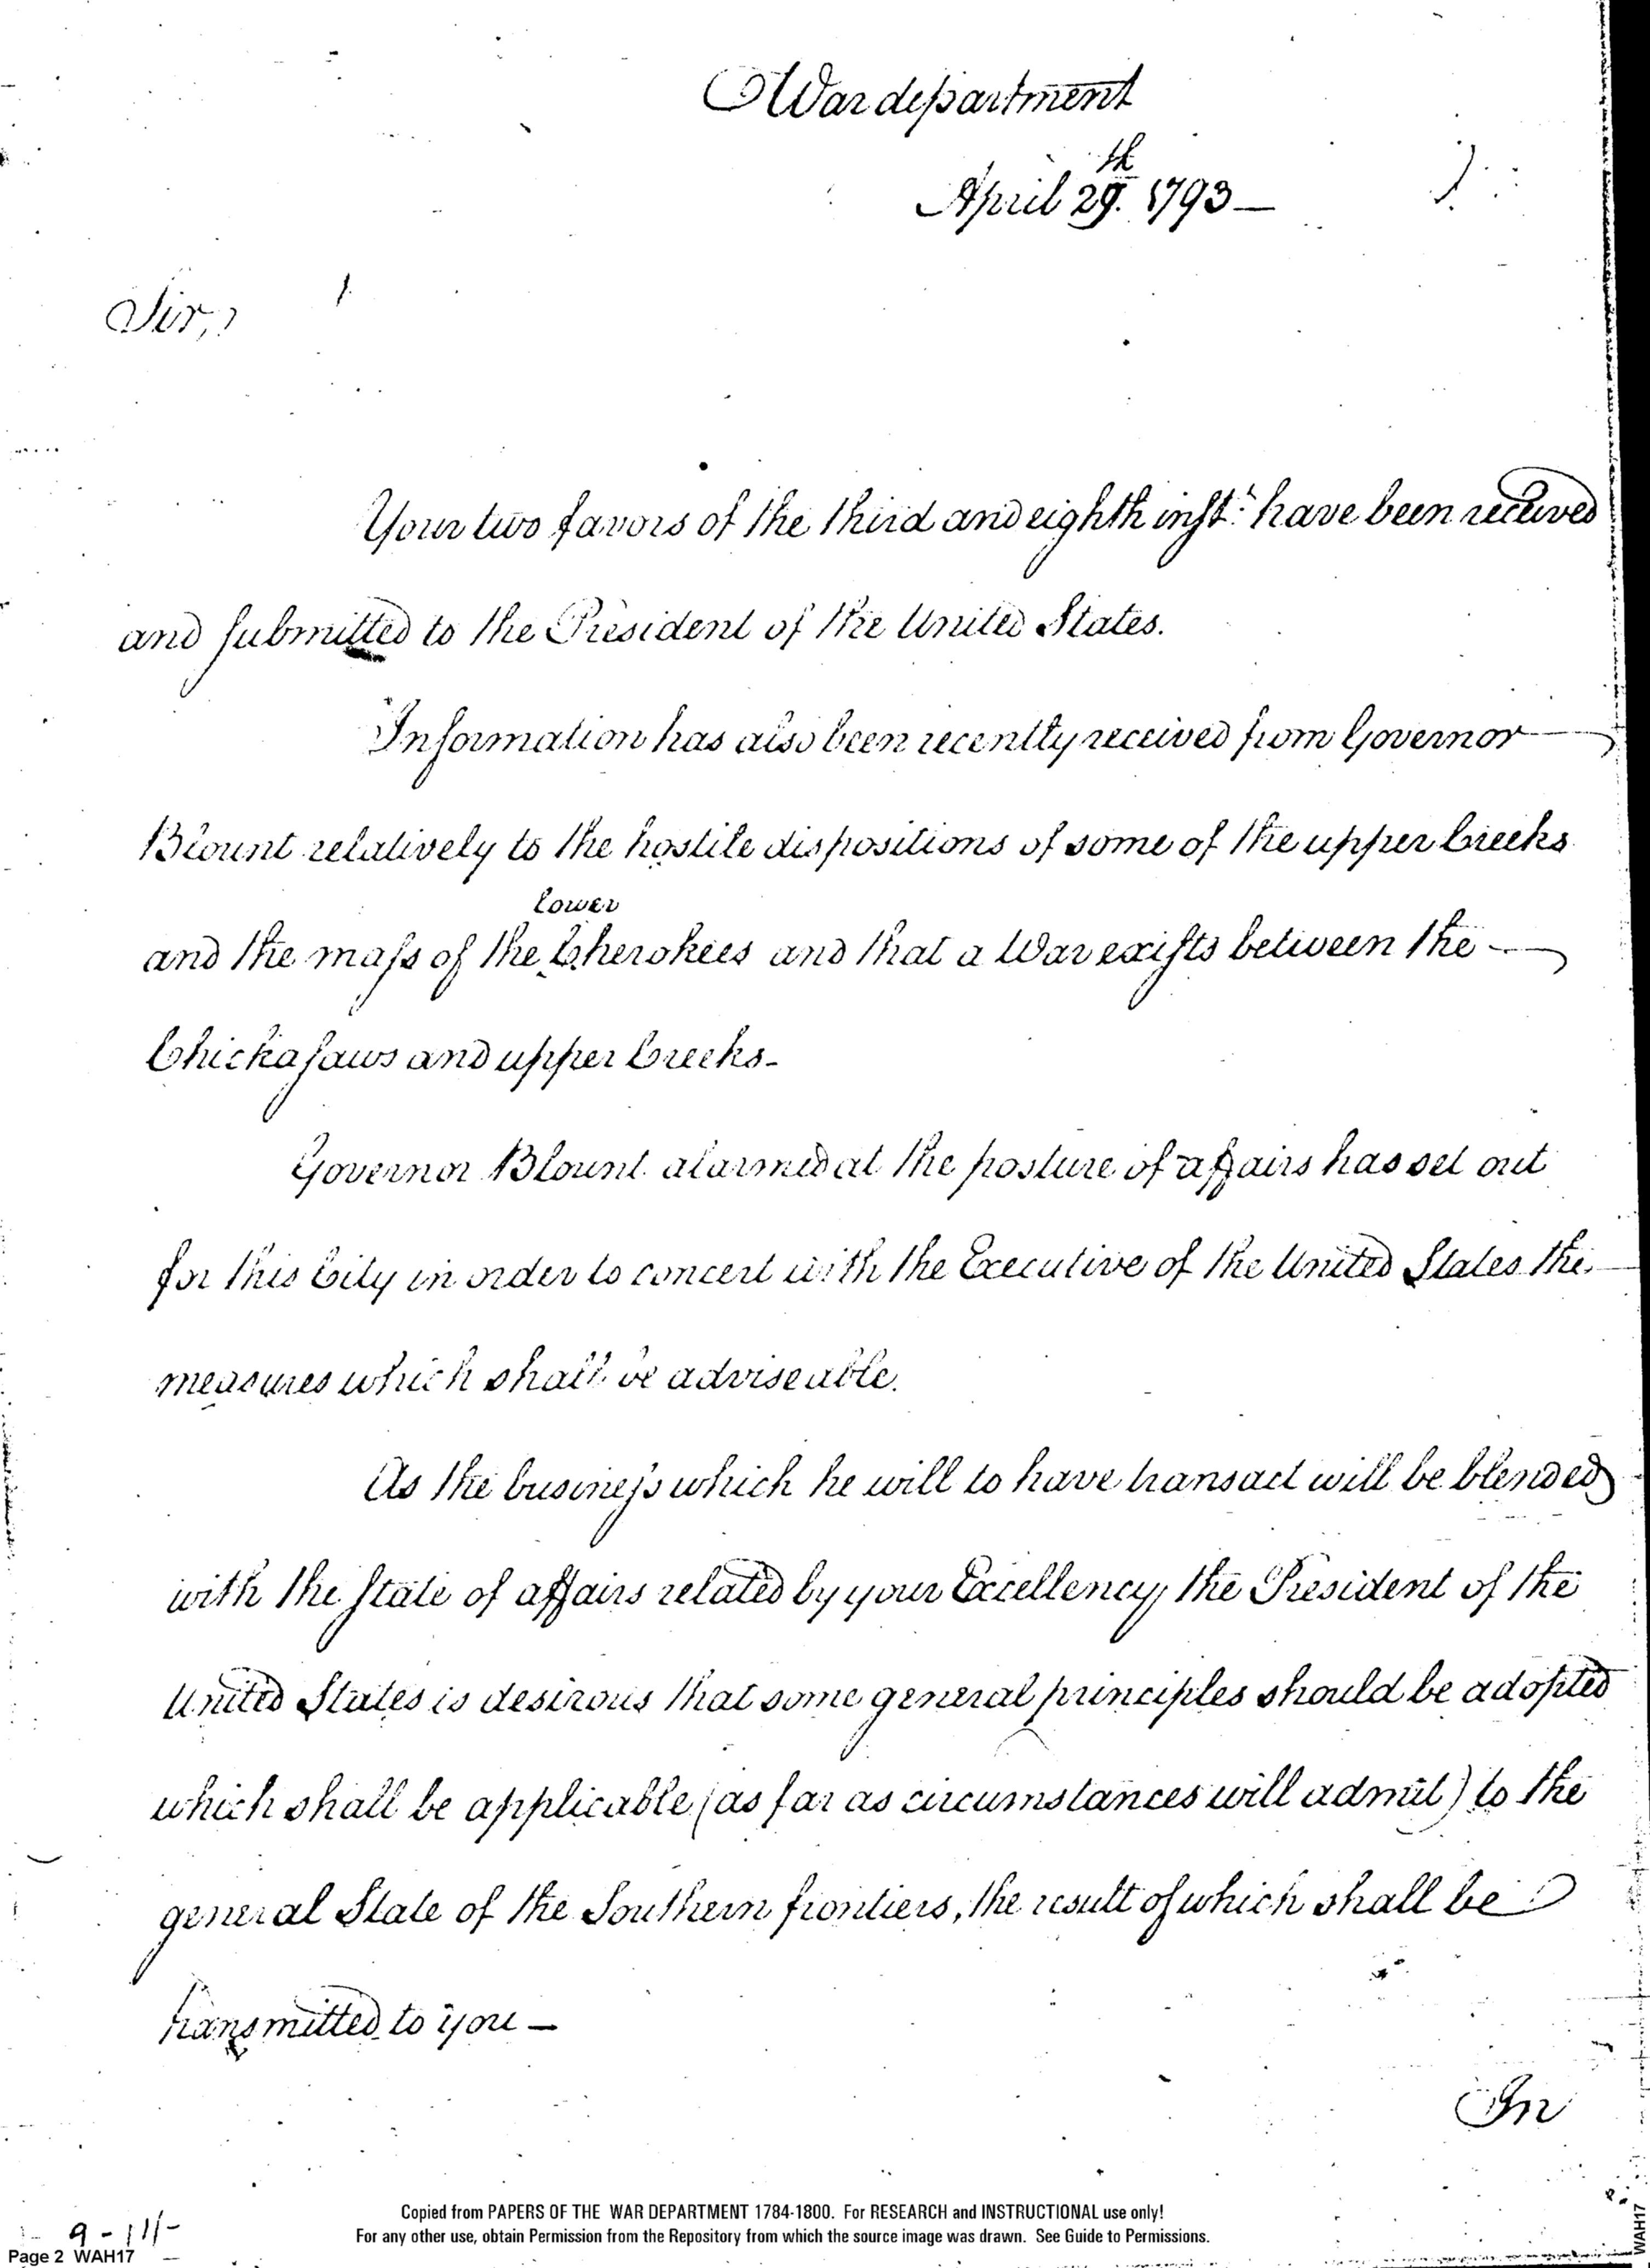 War department
April 29.th 1793—
Sir,
Your two favors of the third and eighth inst: have been received
and submitted to the President of the United States.
Information has also been recently received from Governor
Blount relatively to the hostile dispositions of some of the upper Creeks
lower
and the mass of the Cherokees and that a War exists between the
Chickasaws and upper Creeks-
Governor Blount alarmed at the posture of affairs has set out
for this City in order to concert with the Executive of the United States the
measures which shall be adviseable.
As the business which he will to have transact will be blended
with the State of affairs related by your Excellency, the President of the
United States is desirous that some general principles should be adopted
which shall be applicable (as far as circumstances will admit) to the
general State of the Southern frontiers, the result of which shall be
transmitted to you—
In
Copied from PAPERS OF THE WAR DEPARTMENT 1784-1800. For RESEARCH and INSTRUCTIONAL use only!
For any other use, obtain Permission from the Repository from which the source image was drawn. See Guide to Permissions.
Page 2 WAH17
WAH17